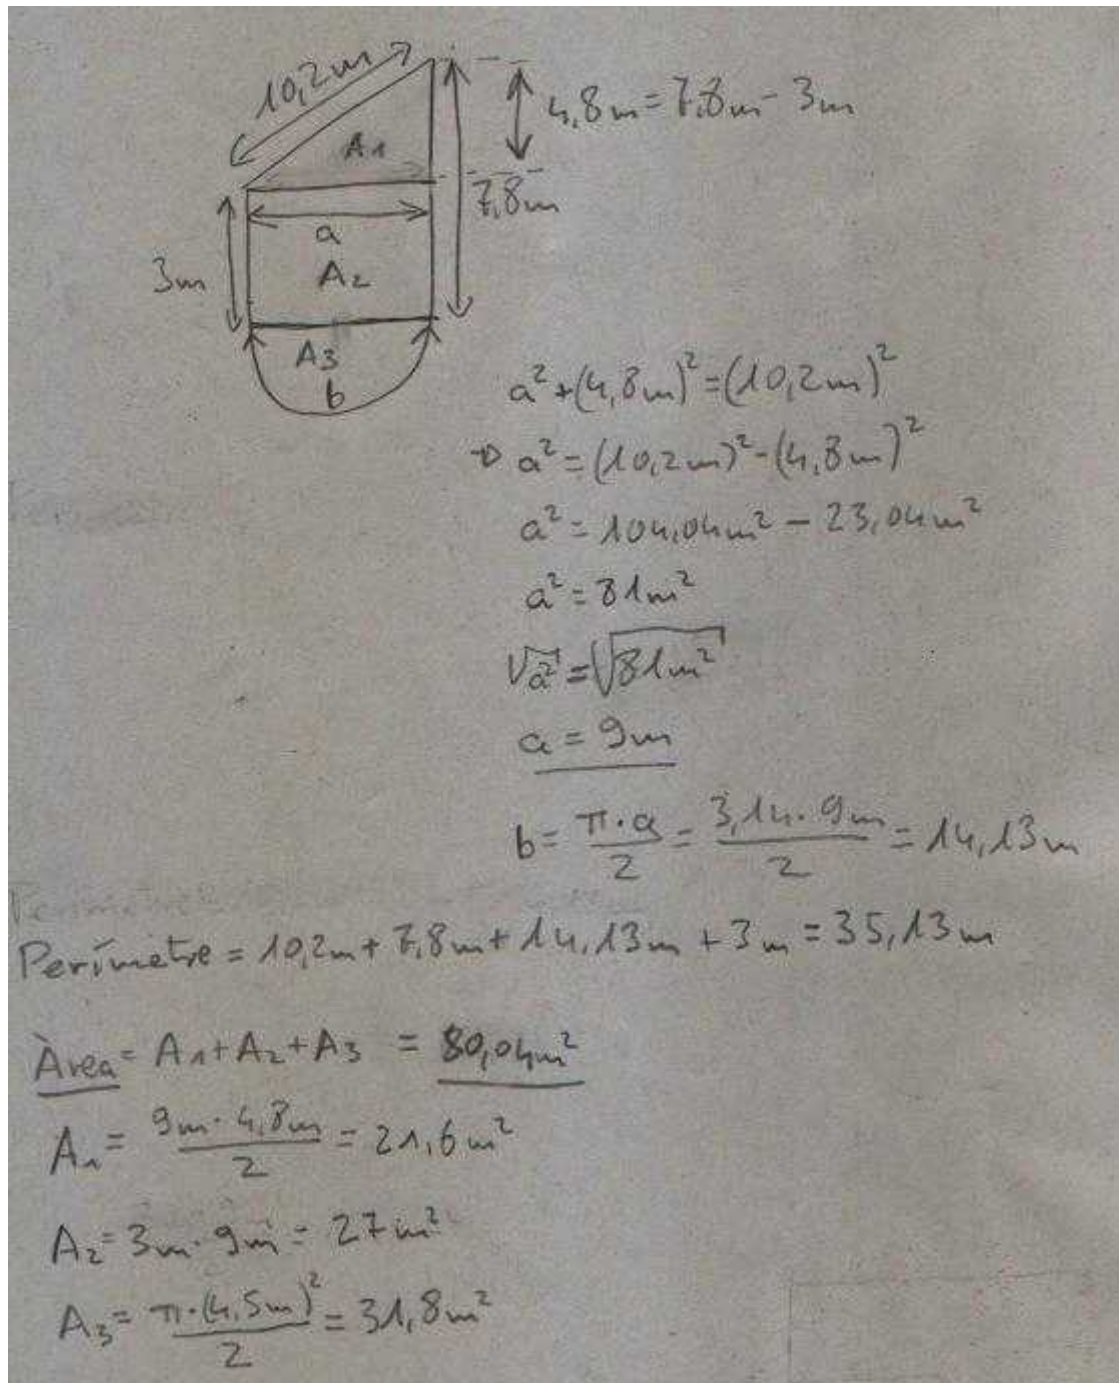 10,2m
4,8m = 7,8m - 3m
A1
7,8m
a
3m
A2
A3
b
a² + (4,8m)² = (10,2m)²
⇒ a² = (10,2m)² - (4,8m)²
a² = 104,04m² - 23,04m²
a² = 81m²
√a² = √81m²
a = 9m
b = π·a/2 = 3,14·9m/2 = 14,13m
Perímetre
Perímetre = 10,2m + 7,8m + 14,13m + 3m = 35,13m
Àrea = A1 + A2 + A3 = 80,04m²
A1 = 9m·4,8m/2 = 21,6m²
A2 = 3m·9m = 27m²
A3 = π·(4,5m)²/2 = 31,8m²